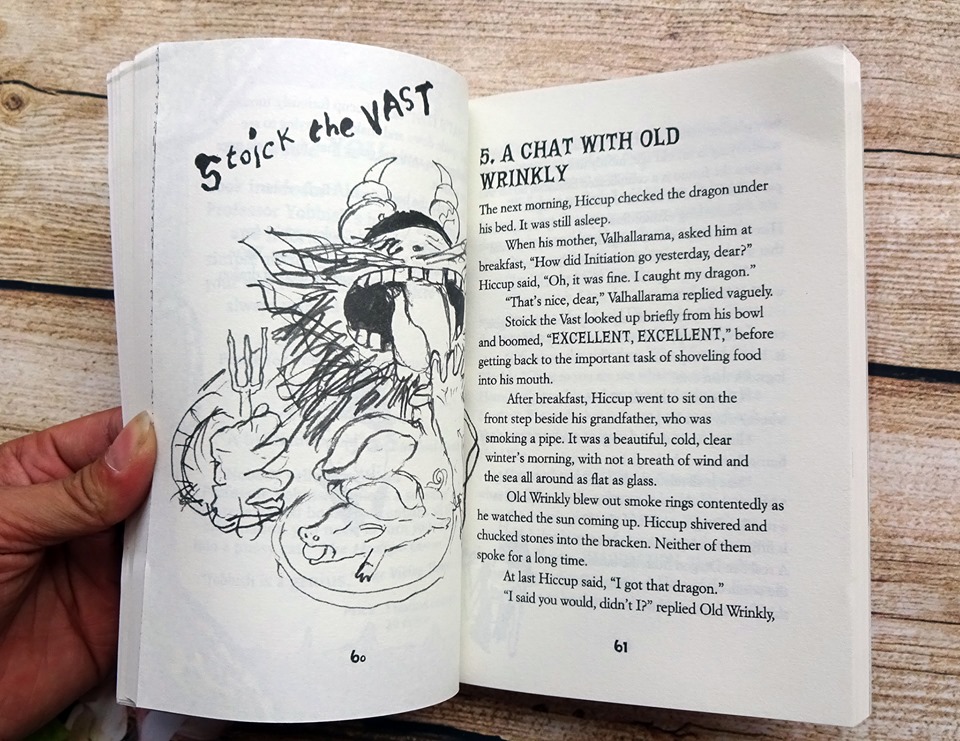 Stoick the VAST
60
5. A CHAT WITH OLD
WRINKLY
The next morning, Hiccup checked the dragon under
his bed. It was still asleep.
When his mother, Valhallarama, asked him at
breakfast, “How did Initiation go yesterday, dear?”
Hiccup said, “Oh, it was fine. I caught my dragon.”
“That’s nice, dear,” Valhallarama replied vaguely.
Stoick the Vast looked up briefly from his bowl
and boomed, “EXCELLENT, EXCELLENT,” before
getting back to the important task of shoveling food
into his mouth.
After breakfast, Hiccup went to sit on the
front step beside his grandfather, who was
smoking a pipe. It was a beautiful, cold, clear
winter’s morning, with not a breath of wind and
the sea all around as flat as glass.
Old Wrinkly blew out smoke rings contentedly as
he watched the sun coming up. Hiccup shivered and
chucked stones into the bracken. Neither of them
spoke for a long time.
At last Hiccup said, “I got that dragon.”
“I said you would, didn’t I?” replied Old Wrinkly,
61